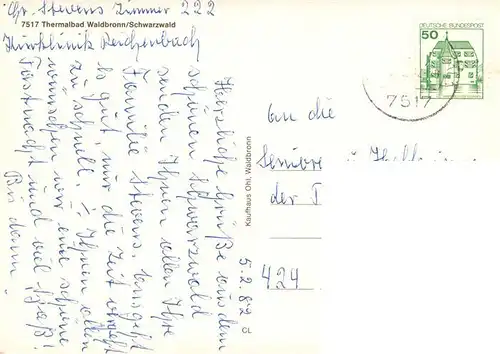 Chr. Stevens Zimmer 222
7517 Thermalbad Waldbronn/Schwarzwald
Kurklinik Reichenbach
Herzliche Grüße aus dem
schönen Schwarzwald
senden Ihnen allen Ihre
Familie Stevens. Uns geht
es gut, nur die Zeit vergeht
zu schnell. Ihnen allen
wünschen wir eine schöne
Fastnacht und viel Spaß!
Bis dann.
5.2.82
CL
Kaufhaus Ohl, Waldbronn
DEUTSCHE BUNDESPOST
50
7517
An die
der
424